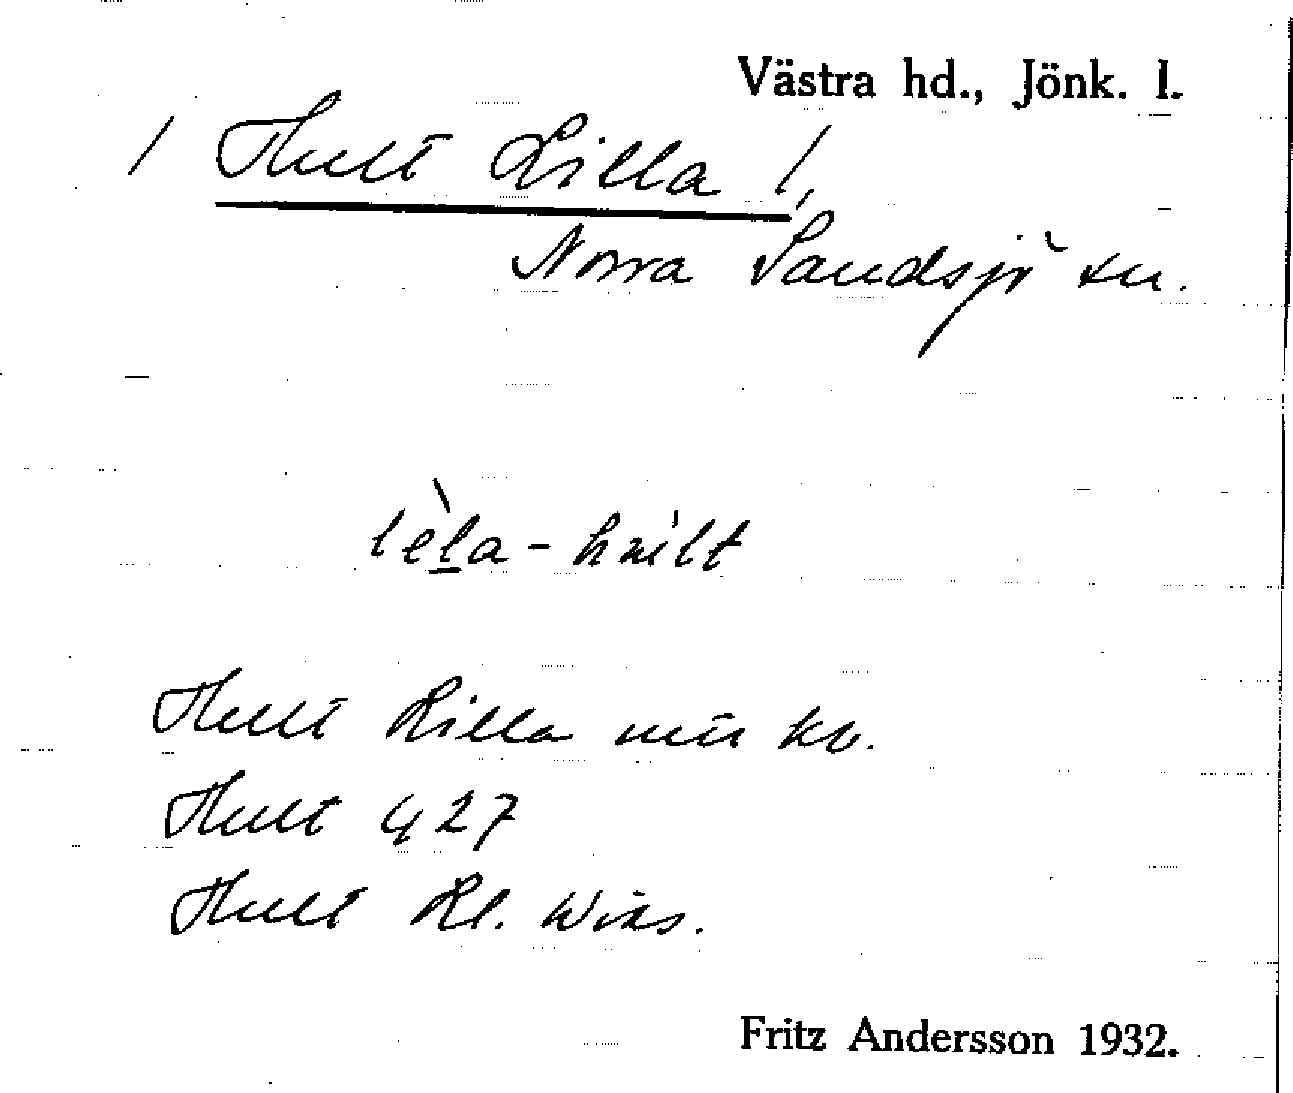 Västra hd., Jönk. l.
/ Hult Lilla /,
Norra Sandsjö sn.
lèla-hult
Hult Lilla kv.
Hult G 27
Hult Ll. Wiks.
Fritz Andersson 1932.